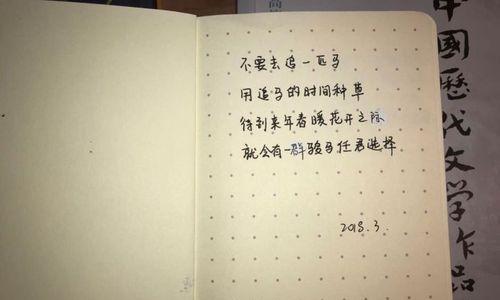 不要去追一匹马
用追马的时间种草
待到来年春暖花开之际
就会有一群骏马任君选择
2018.3.
中國歷代文学作品